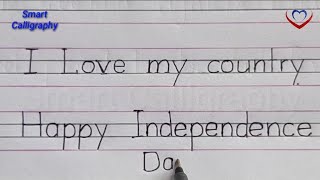 Smart
Calligraphy
I Love my country
Happy Independence
Da